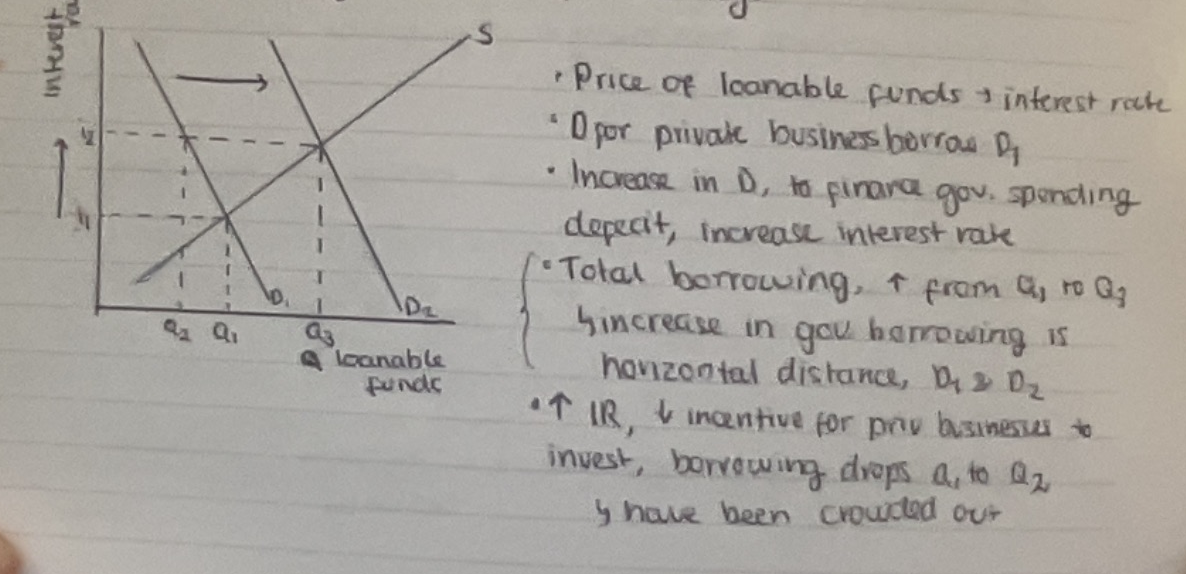 interest
S
· Price of loanable funds → interest rate
· D for private business borrow D₁
· Increase in D, to finance gov. spending
deficit, increase interest rate
· Total borrowing, ↑ from Q₁ to Q₃
↳ increase in gov borrowing is
horizontal distance, D₁ → D₂
· ↑ IR, ↓ incentive for priv businesses to
invest, borrowing drops Q₁ to Q₂
↳ have been crowded out
i₂
i₁
D₁
D₂
Q₂ Q₁ Q₃
Q loanable
funds